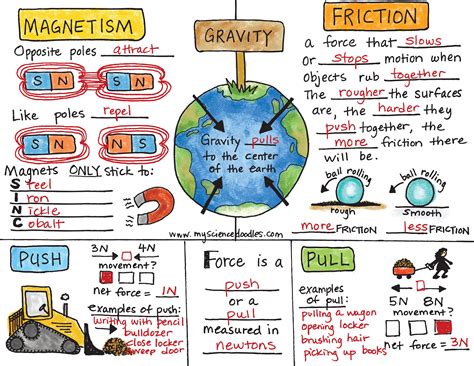 MAGNETISM
Opposite poles attract
S N S N
Like poles repel
S N N S
Magnets ONLY stick to:
Steel
Iron
Nickle
Cobalt
GRAVITY
Gravity pulls
to the center
of the earth
www.mysciencedoodles.com
FRICTION
a force that slows
or stops motion when
objects rub together
The rougher the surfaces
are, the harder they
push together, the
more friction there
will be.
ball rolling
ball rolling
rough
smooth
more FRICTION
less FRICTION
PUSH
3N 4N
movement?
net force = 1N
examples of push:
writing with pencil
bulldozer
close locker
sweep door
Force is a
push
or a
pull
measured in
newtons
PULL
examples
of pull:
5N 8N
movement?
pulling a wagon
opening locker
brushing hair
picking up books